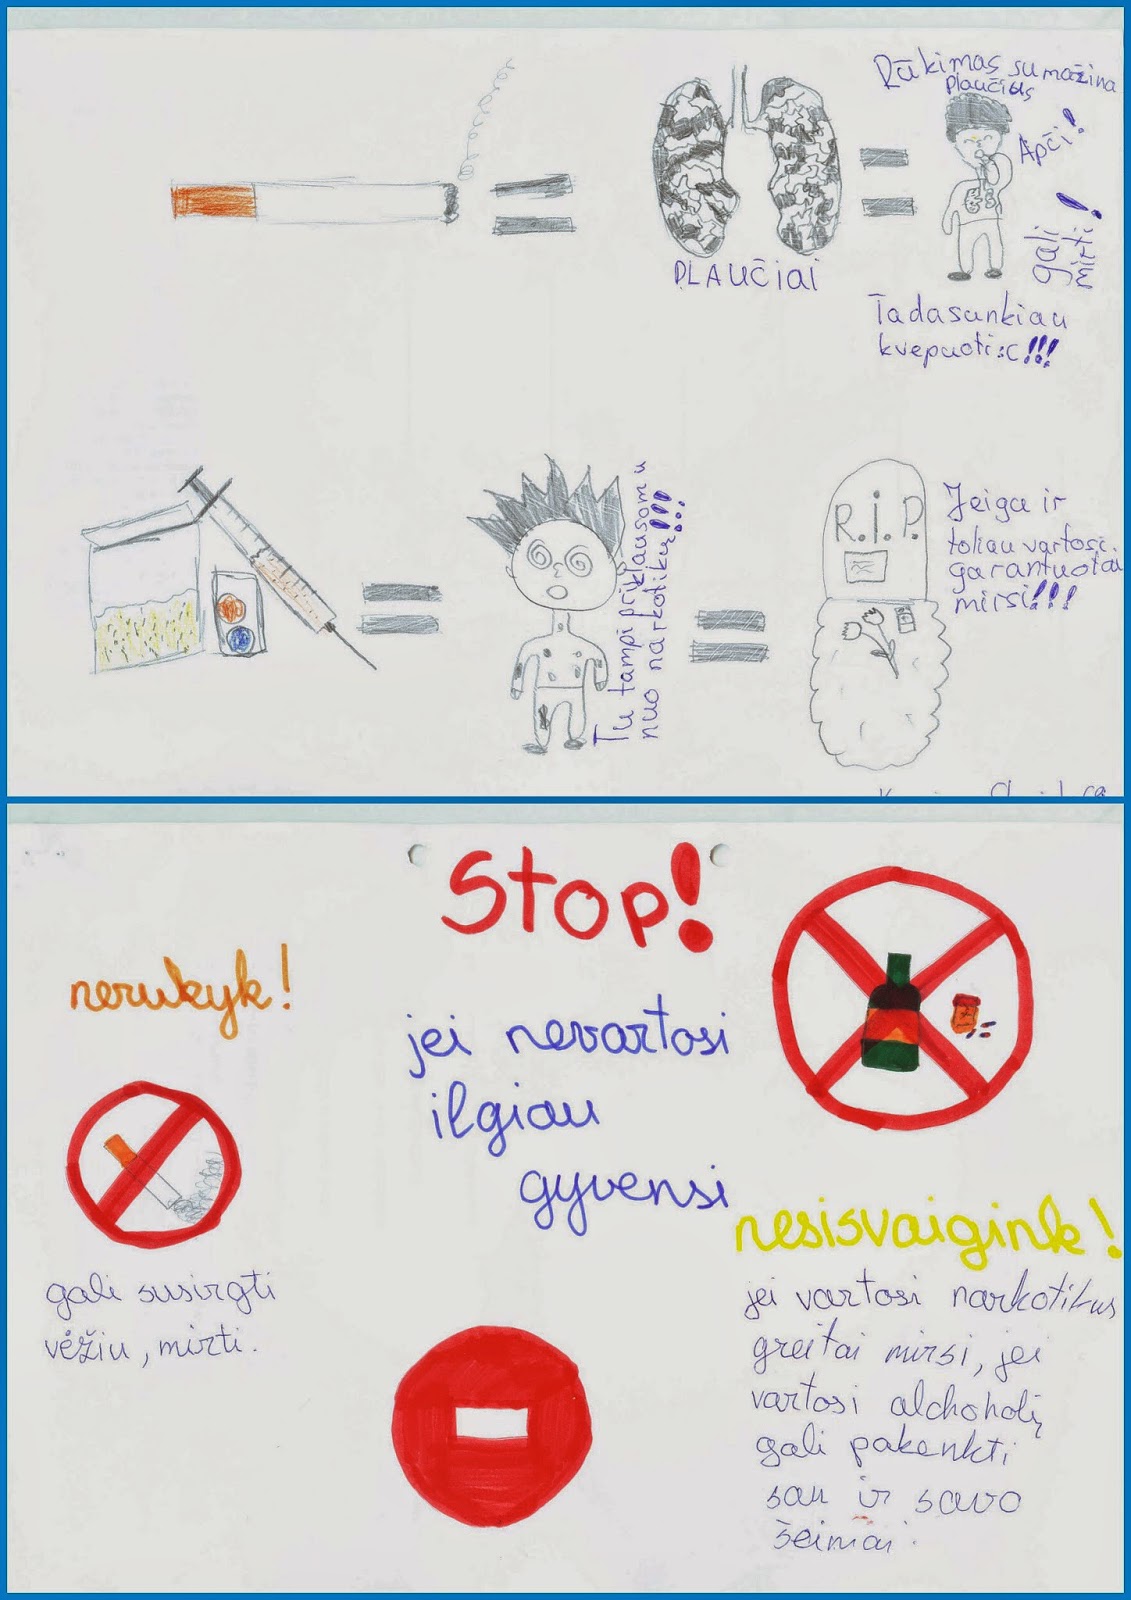 Rūkimas sumažina
plaučius
Apči!
gali
mirti!
PLAUČIAI
Tada sunkiau
kvepuoti :c!!!
R.i.P.
Jeiga ir
toliau vartosi
garantuotai
mirsi!!!
Tu tampi priklausomu
nuo narkotikų!!!
Stop!
nerukyk!
jei nevartosi
ilgiau
gyvensi
nesisvaigink!
gali susirgti
vėžiu, mirti.
jei vartosi narkotikus
greitai mirsi, jei
vartosi alchoholį
gali pakenkti
sau ir savo
šeimai.